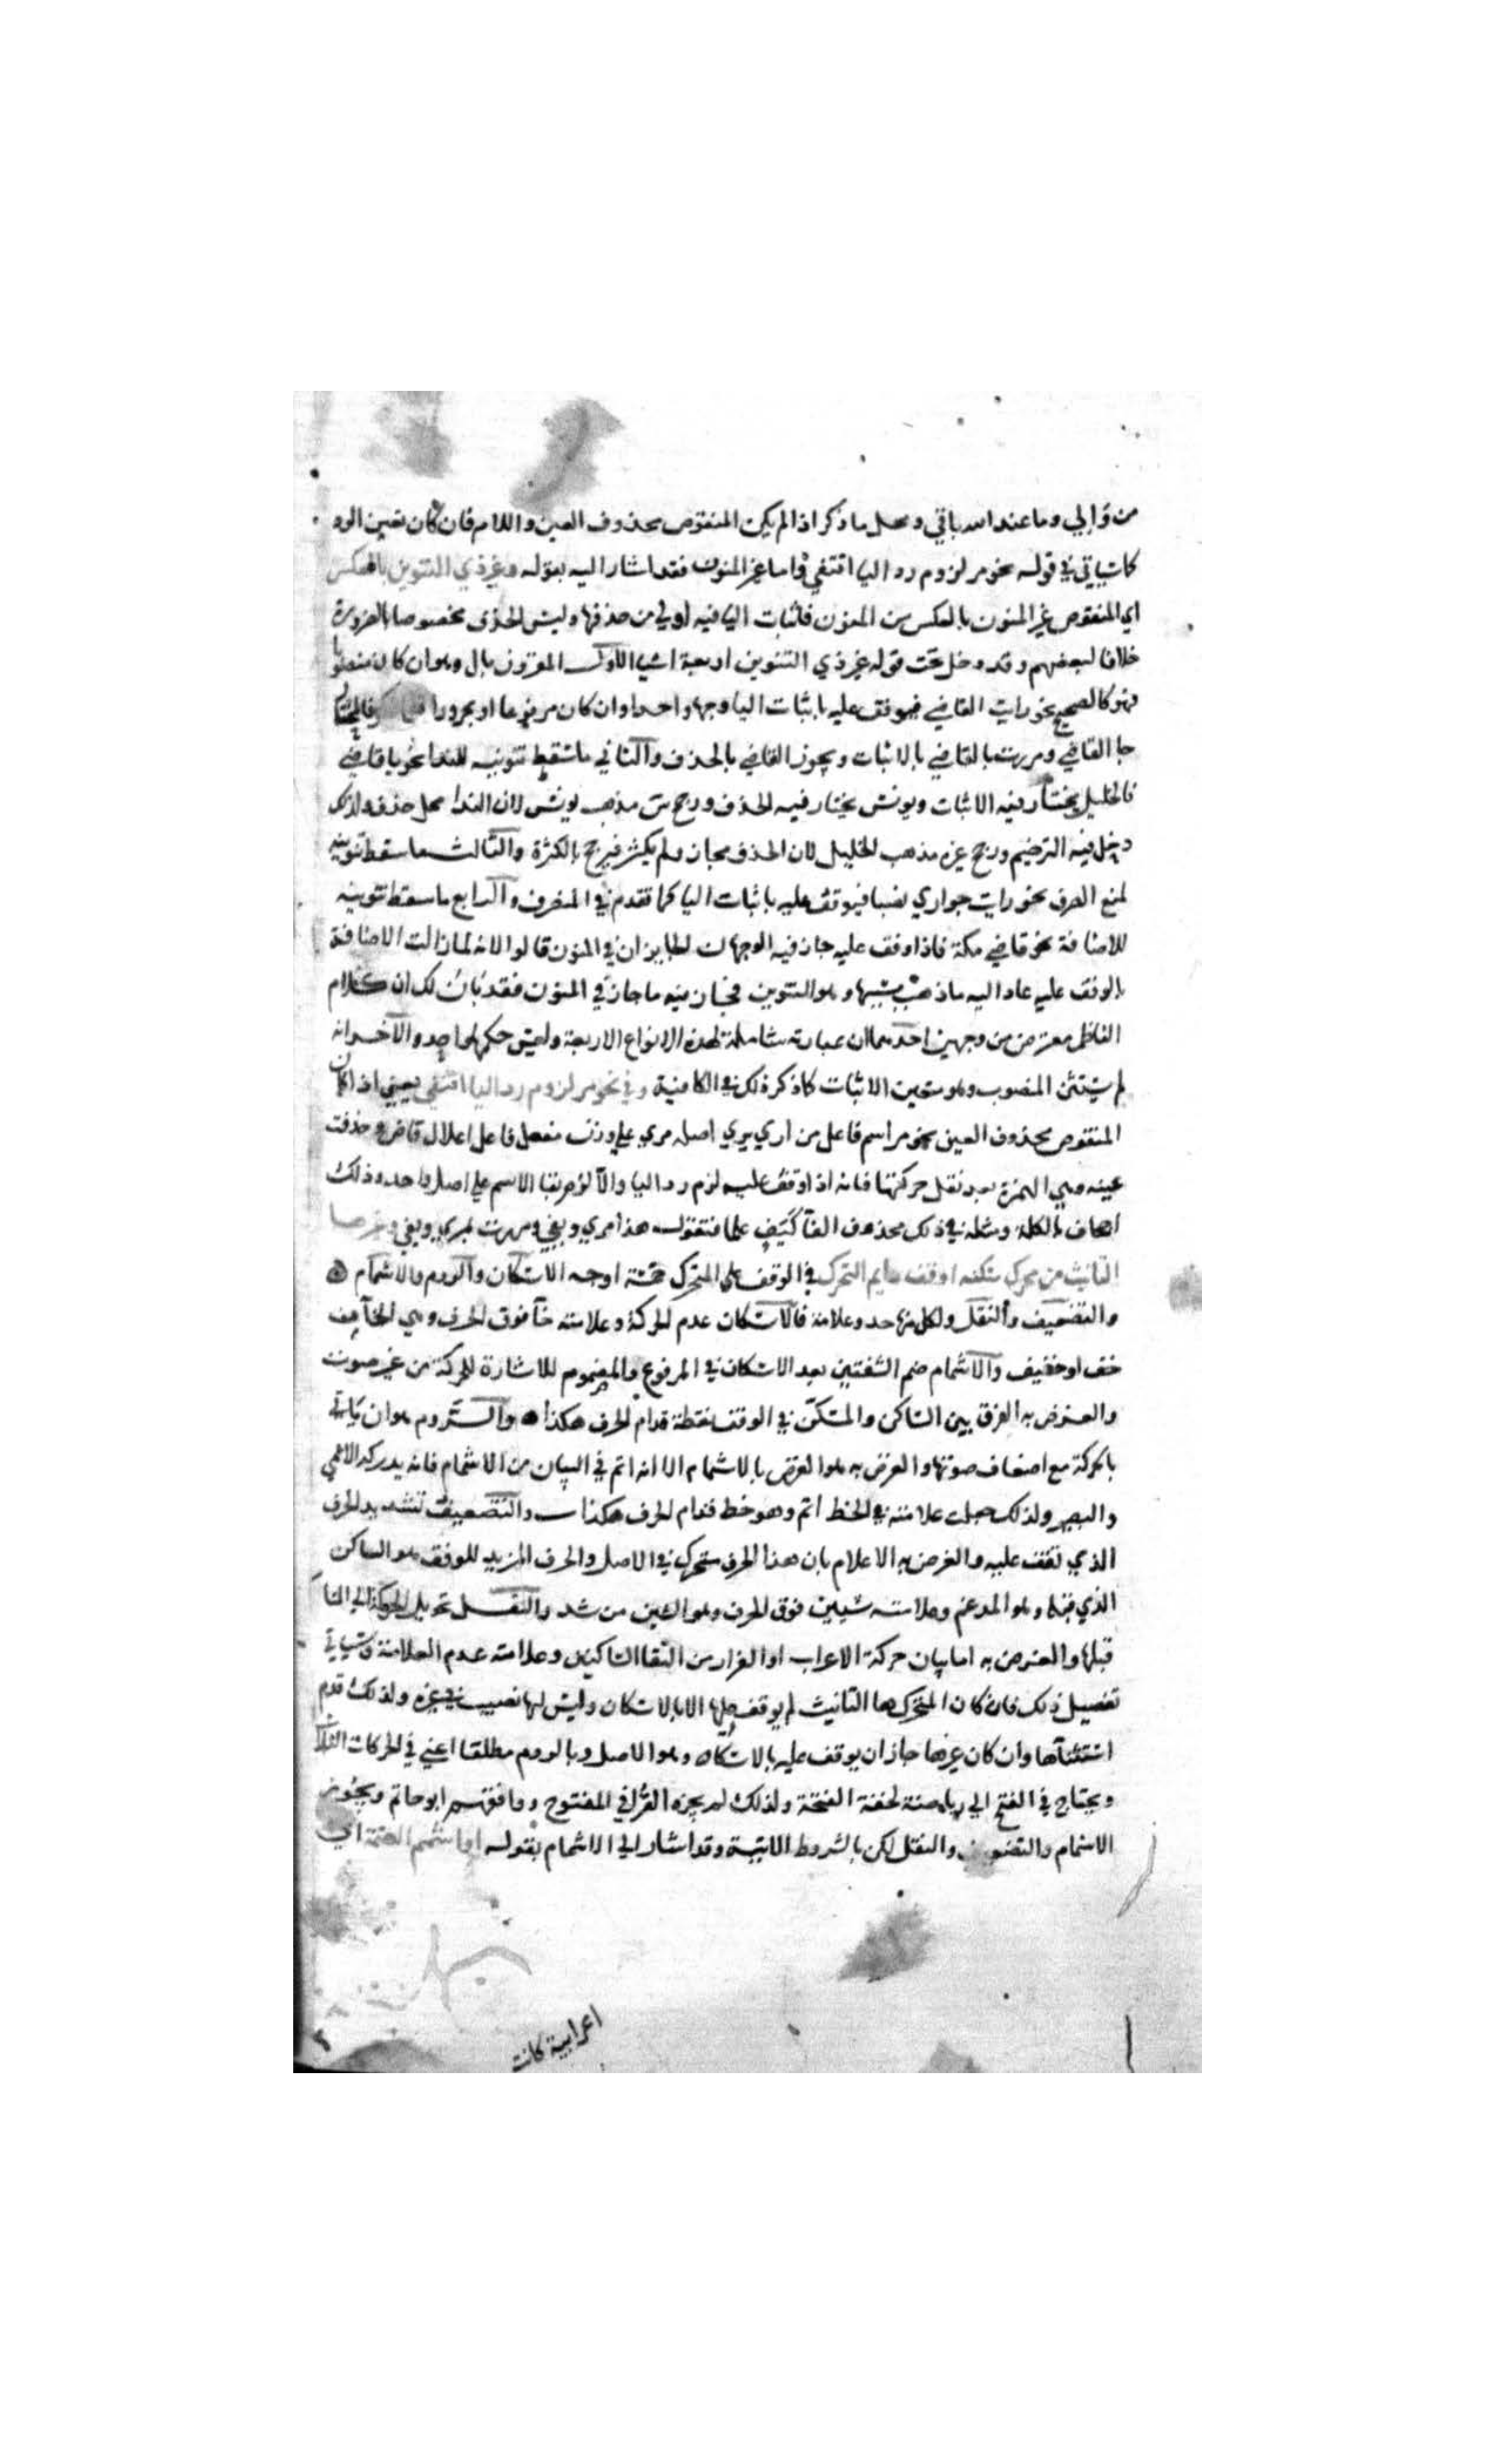 من والي وما عند الله باقي ومحل ما ذكر اذا لم يكن المنقوص محذوف العين واللام فان كان تعين الرد
كما سياتي في قوله نحو مر لزوم رد اليا اقتفي واما غير المنون فقد اشار اليه بقوله وغير ذي التنوين بالعكس
اي المنقوص غير المنون بالعكس من المنون فاثبات اليا فيه اولي من حذفها وليس الحذف مخصوصا بالضرورة
خلافا لبعضهم وقد دخل تحت قوله غير ذي التنوين اربعة اشيا الاول المقرون بال وهو ان كان منصوبا
فهو كالصحيح نحو رايت القاضي فيوقف عليه باثبات اليا وجها واحدا وان كان مرفوعا او مجرورا فالمختار
جا القاضي ومررت بالقاضي بالاثبات ويجوز القاضي بالحذف والثاني ما سقط تنوينه للندا نحو يا قاضي
فالخليل يختار فيه الاثبات ويونس يختار فيه الحذف ورجح س مذهب يونس لان الندا محل حذف ولذلك
دخل فيه الترخيم ورجح غيره مذهب الخليل لان الحذف مجاز ولم يكثر فيرجح بالكثرة والثالث ما سقط تنوينه
لمنع الصرف نحو رايت جواري نصبا فيوقف عليه باثبات اليا كما تقدم في المنصرف والرابع ما سقط تنوينه
للاضافة نحو قاضي مكة فاذا وقف عليه جاز فيه الوجهان الجايزان في المنون قالوا لانه لما زالت الاضافة
بالوقف عليه عاد اليه ما ذهب بسببها وهو التنوين فجاز فيه ما جاز في المنون فقد بان لك ان كلام
الناظم معترض من وجهين احدهما ان عبارته شاملة لهذه الانواع الاربعة وليس حكمها واحد والاخر انه
لم يستثن المنصوب وهو متعين الاثبات كما ذكر ذلك في الكافية وفي نحو مر لزوم رد اليا اقتفي يعني اذا كان
المنقوص محذوف العين نحو مر اسم فاعل من اري يري اصله مرءي علي وزن مفعل فاعل اعلال قاض وحذفت
عينه وهي الهمزة بعد نقل حركتها فانه اذا وقف عليه لزم رد اليا والا لزم بقا الاسم علي اصل واحد وذلك
اجحاف بالكلمة ومثله في ذلك محذوف الفا كيف علما فتقول هذا مري ويفي ومررت بمري ويفي وغير ها
التانيث من محرك سكنه او قف رايم التحرك في الوقف علي المتحرك خمسة اوجه الاسكان والروم والاشمام
والتضعيف والنقل ولكل منها حد وعلامة فالاسكان عدم الحركة وعلامته خا فوق الحرف وهي الخا من
خف او خفيف والاشمام ضم الشفتين بعد الاسكان في المرفوع والمضموم للاشارة للحركة من غير صوت
والغرض به الفرق بين الساكن والمسكن في الوقف نقطة قدام الحرف هكذا ه والروم هو ان ياتي
بالحركة مع اضعاف صوتها والغرض به هو الغرض بالاشمام الا انه اتم في البيان من الاشمام فانه يدركه الاعمي
والبصير ولذلك جعلت علامته في الخط اتم وهو خط قدام الحرف هكذا ـــ والتضعيف تشديد الحرف
الذي تقف عليه والغرض به الاعلام بان هذا الحرف متحرك في الاصل والحرف المزيد للوقف هو الساكن
الذي قبله وهو المدغم وعلامته شيين فوق الحرف وهو الشين من شد والنقل تحويل الحركة الي الساكن
قبلها والغرض به اما بيان حركة الاعراب او الفرار من التقا الساكنين وعلامته عدم العلامة وسياتي
تفصيل ذلك فان كان المتحرك ها التانيث لم يوقف عليها الا بالاسكان وليس لها نصيب في غيره ولذلك قدم
استثناها وان كان غيرها جاز ان يوقف عليه بالاسكان وهو الاصل وبالروم مطلقا اعني في الحركات الثلاث
ويحتاج في الفتح الي رياضة لخفة الفتحة ولذلك لم يجزه الفرا في المفتوح ووافقهم ابو حاتم ويجوز
الاشمام والتضعيف والنقل لكن بالشروط الاتية وقد اشار الي الاشمام بقوله او اشمم الضمة اي
اعرابية كانت